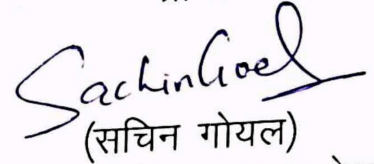 Sachin Goel
(सचिन गोयल)